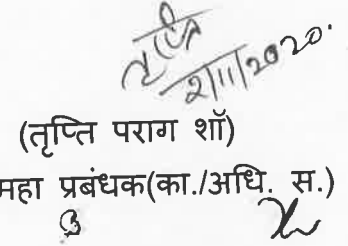 तृप्ति
2/11/2020.
(तृप्ति पराग शॉ)
महा प्रबंधक(का./अधि. स.)